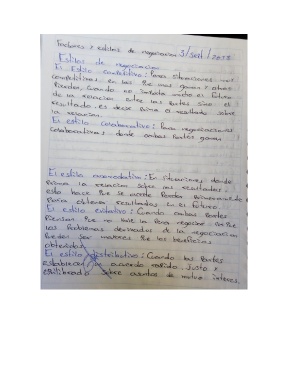 Factores y estilos de negociacion 3/sept/2018
Estilos de negociacion
El Estilo competitivo: Para situaciones muy
competitivas en las que mas ganan y otros
Pierden, Cuando no importa mucho el futuro
de la relacion entre las Partes sino el
resultado, es decir Prima el resultado sobre
la relacion.
El estilo colaborativo: Para negociaciones
colaborativas donde ambas Partes ganan
El estilo acomodativo: En situaciones donde
Prima la relacion sobre los resultados:
esto hace Que se acepte Perder
Para obtener resultados en el futuro.
El estilo evitativo: Cuando ambas Partes
Piensan Que no vale la Pena negociar
los Problemas derivados de la negociacion
Pueden ser mayores Que los beneficios
obtenidos
El estilo distributivo: Cuando las Partes
establecen un acuerdo solido, justo y
equilibrado sobre asuntos de mutuo interes.